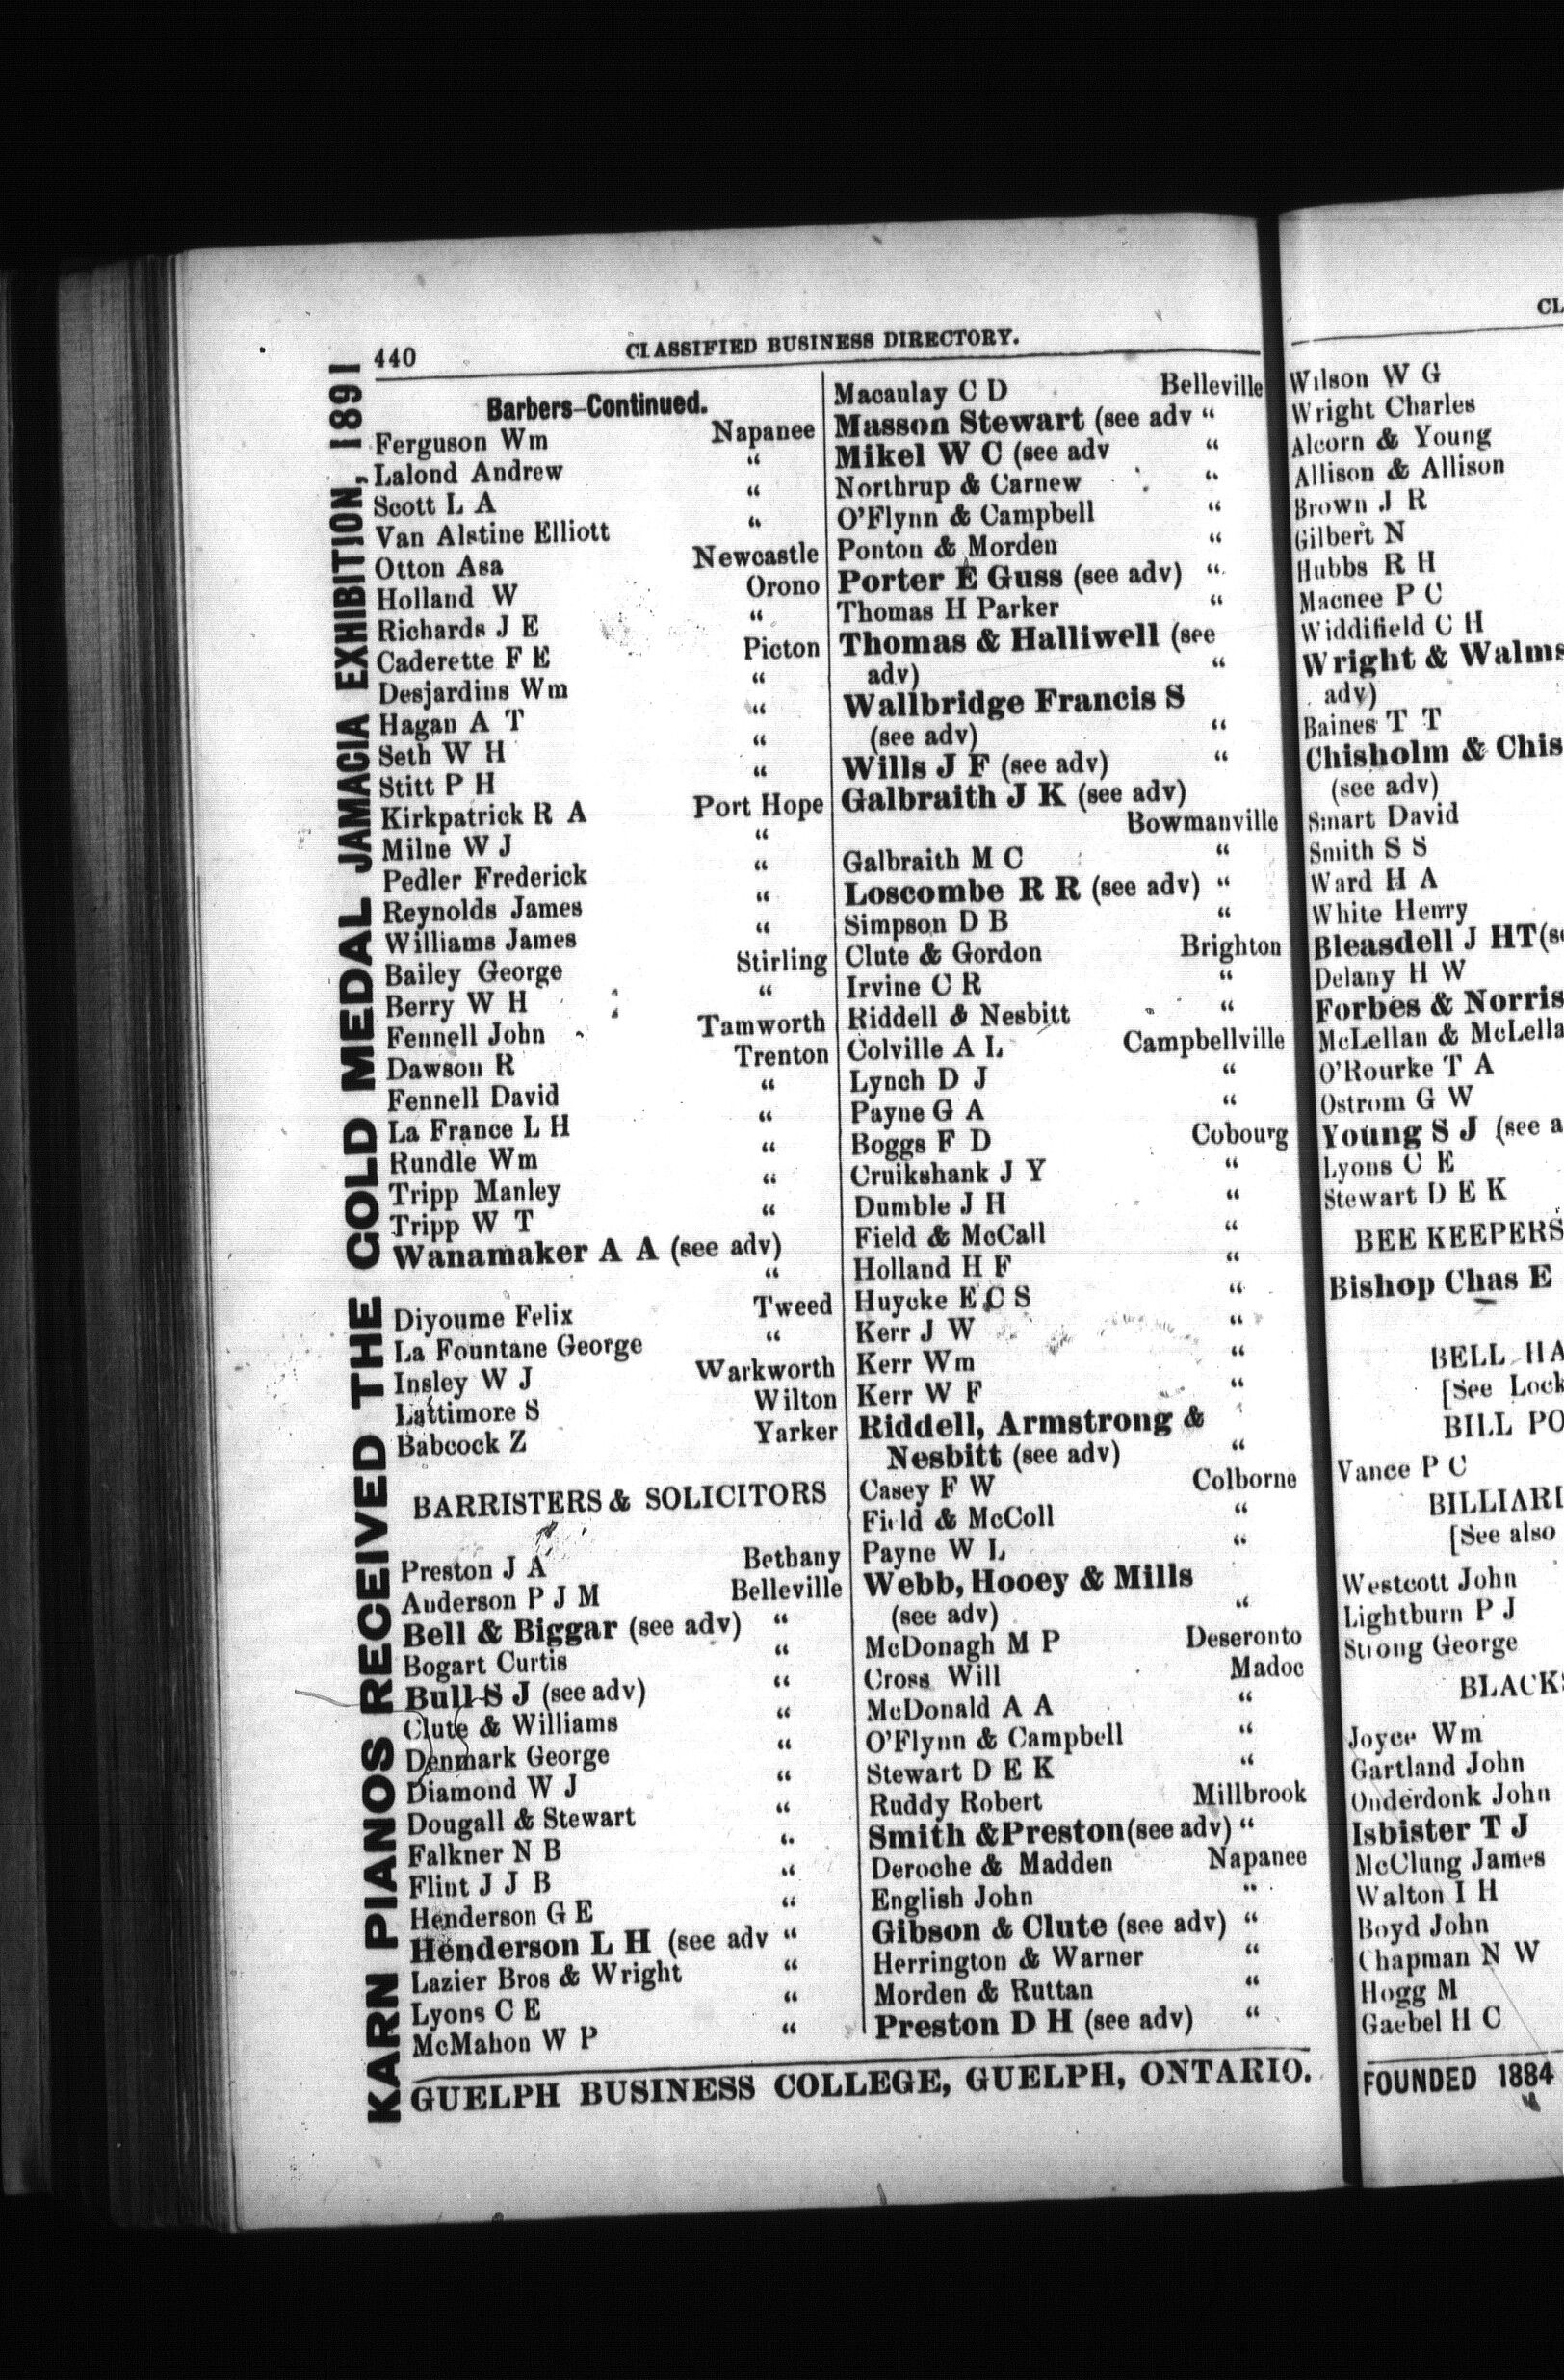 440
CLASSIFIED BUSINESS DIRECTORY.
KARN PIANOS RECEIVED THE GOLD MEDAL JAMACIA EXHIBITION, 1891
Barbers-Continued.
Ferguson Wm Napanee
Lalond Andrew “
Scott L A “
Van Alstine Elliott “
Otton Asa Newcastle
Holland W Orono
Richards J E “
Caderette F E Picton
Desjardins Wm “
Hagan A T “
Seth W H “
Stitt P H “
Kirkpatrick R A Port Hope
Milne W J “
Pedler Frederick “
Reynolds James “
Williams James “
Bailey George Stirling
Berry W H “
Fennell John Tamworth
Dawson R Trenton
Fennell David “
La France L H “
Rundle Wm “
Tripp Manley “
Tripp W T “
Wanamaker A A (see adv)
“
Diyoume Felix Tweed
La Fountane George “
Insley W J Warkworth
Lattimore S Wilton
Babcock Z Yarker
BARRISTERS & SOLICITORS
Preston J A Bethany
Anderson P J M Belleville
Bell & Biggar (see adv) “
Bogart Curtis “
Bull S J (see adv) “
Clute & Williams “
Denmark George “
Diamond W J “
Dougall & Stewart “
Falkner N B “
Flint J J B “
Henderson G E “
Henderson L H (see adv “
Lazier Bros & Wright “
Lyons C E “
McMahon W P “
Macaulay C D Belleville
Masson Stewart (see adv “
Mikel W C (see adv “
Northrup & Carnew “
O'Flynn & Campbell “
Ponton & Morden “
Porter E Guss (see adv) “
Thomas H Parker “
Thomas & Halliwell (see
adv) “
Wallbridge Francis S
(see adv) “
Wills J F (see adv) “
Galbraith J K (see adv)
Bowmanville
Galbraith M C “
Loscombe R R (see adv) “
Simpson D B “
Clute & Gordon Brighton
Irvine C R “
Riddell & Nesbitt “
Colville A L Campbellville
Lynch D J “
Payne G A “
Boggs F D Cobourg
Cruikshank J Y “
Dumble J H “
Field & McCall “
Holland H F “
Huycke E C S “
Kerr J W “
Kerr Wm “
Kerr W F “
Riddell, Armstrong &
Nesbitt (see adv) “
Casey F W Colborne
Field & McColl “
Payne W L “
Webb, Hooey & Mills
(see adv) “
McDonagh M P Deseronto
Cross Will Madoc
McDonald A A “
O'Flynn & Campbell “
Stewart D E K “
Ruddy Robert Millbrook
Smith &Preston(see adv) “
Deroche & Madden Napanee
English John “
Gibson & Clute (see adv) “
Herrington & Warner “
Morden & Ruttan “
Preston D H (see adv) “
GUELPH BUSINESS COLLEGE, GUELPH, ONTARIO.
CL
Wilson W G
Wright Charles
Alcorn & Young
Allison & Allison
Brown J R
Gilbert N
Hubbs R H
Macnee P C
Widdifield C H
Wright & Walms
adv)
Baines T T
Chisholm & Chis
(see adv)
Smart David
Smith S S
Ward H A
White Henry
Bleasdell J HT(se
Delany H W
Forbes & Norris
McLellan & McLella
O'Rourke T A
Ostrom G W
Young S J (see a
Lyons C E
Stewart D E K
BEE KEEPERS
Bishop Chas E
BELL HA
[See Lock
BILL PO
Vance P C
BILLIARD
[See also
Westcott John
Lightburn P J
Strong George
BLACKS
Joyce Wm
Gartland John
Onderdonk John
Isbister T J
McClung James
Walton I H
Boyd John
Chapman N W
Hogg M
Gaebel H C
FOUNDED 1884